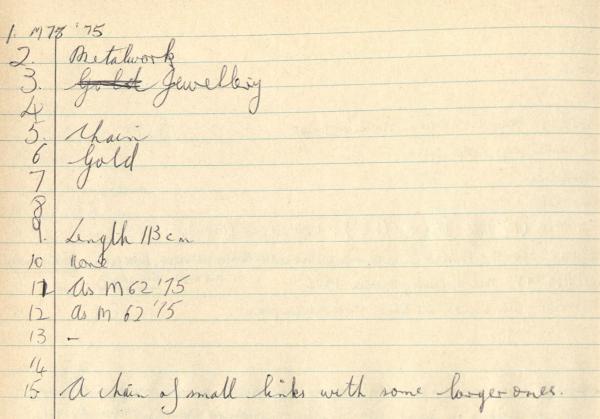 1. M78 '75
2. Metalwork
3. Gold Jewellery
4
5. Chain
6 Gold
7
8
9. Length 113 cm
10 none
11 As M 62 '75
12 as M 62 '75
13 -
14
15 A chain of small links with some larger ones.